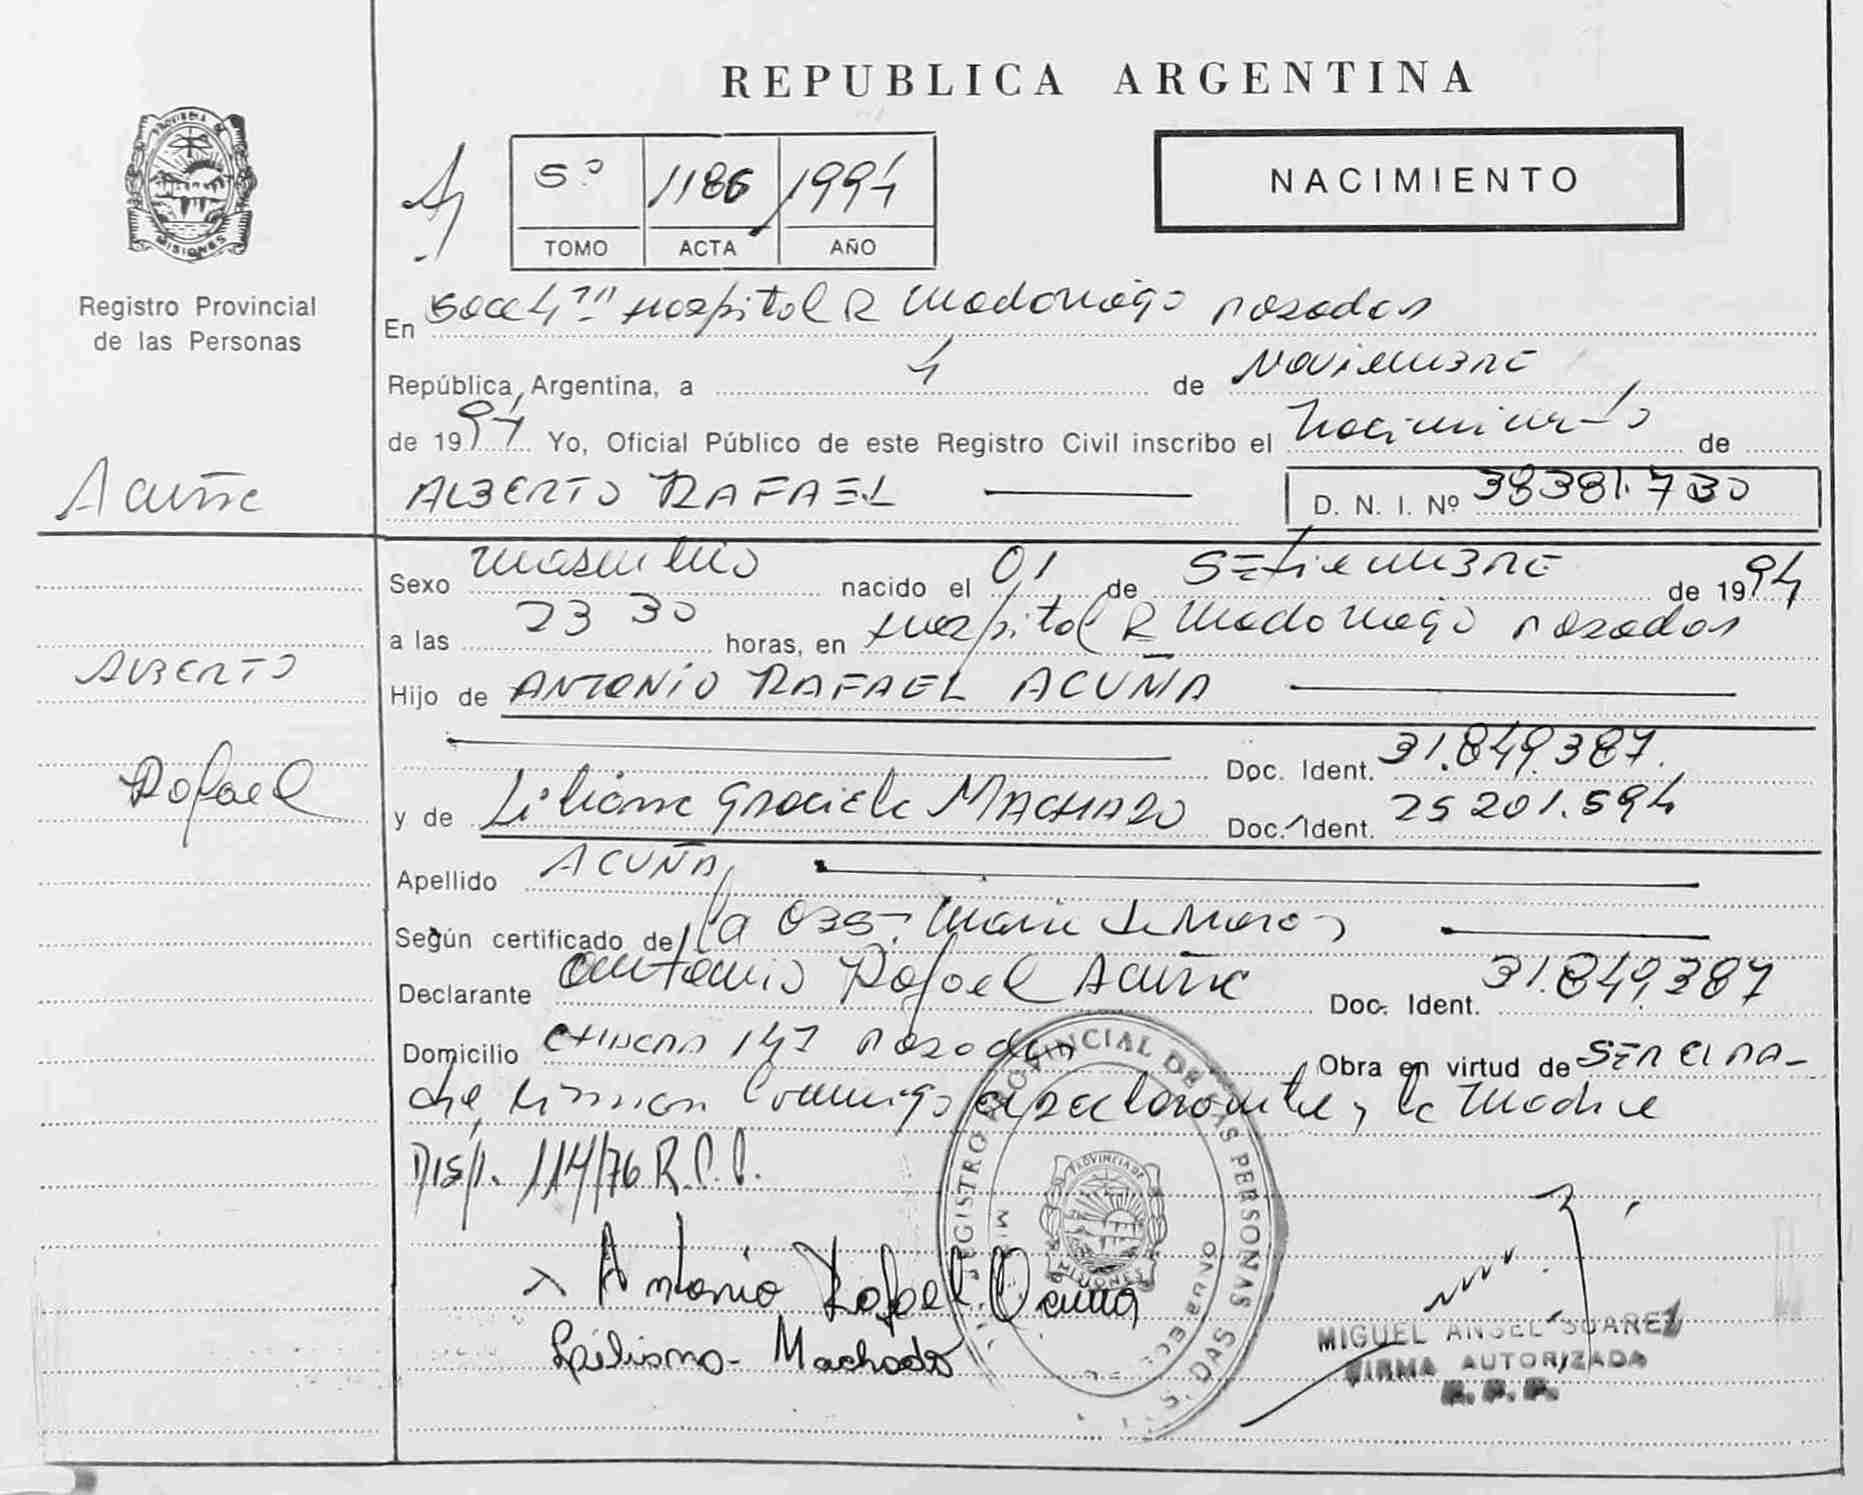 REPUBLICA ARGENTINA
PROVINCIA DE
MISIONES
Registro Provincial
de las Personas
5º 1186 1994
TOMO ACTA AÑO
NACIMIENTO
En Secc 4ta Hospital R Madariaga Posadas
República Argentina, a 4 de Noviembre
de 1994 Yo, Oficial Público de este Registro Civil inscribo el Nacimiento de
Acuña
ALBERTO RAFAEL
D. N. I. Nº 38381.730
Sexo masculino nacido el 01 de SEtiembre de 1994
a las 23 30 horas, en Hospital R Madariaga Posadas
ALBERTO
Hijo de ANTONIO RAFAEL ACUÑA
Doc. Ident. 31.849.387.
Rafael
y de Liliana Graciela MACHADO Doc. Ident. 25 201.594
Apellido ACUÑA
Según certificado de la Obst. Maria
Declarante Antonio Rafael Acuña Doc. Ident. 31.849.387
Domicilio 147 Posadas Obra en virtud de SER El PA-
dre, firman conmigo el declarante y la Madre
Disp. 114/76 R.P.P.
x Antonio Rafael Acuña
Liliana Machado
REGISTRO PROVINCIAL DE LAS PERSONAS
PROVINCIA DE
MISIONES
GOBIERNO
MIGUEL ANGEL SUAREZ
FIRMA AUTORIZADA
R. P. P.